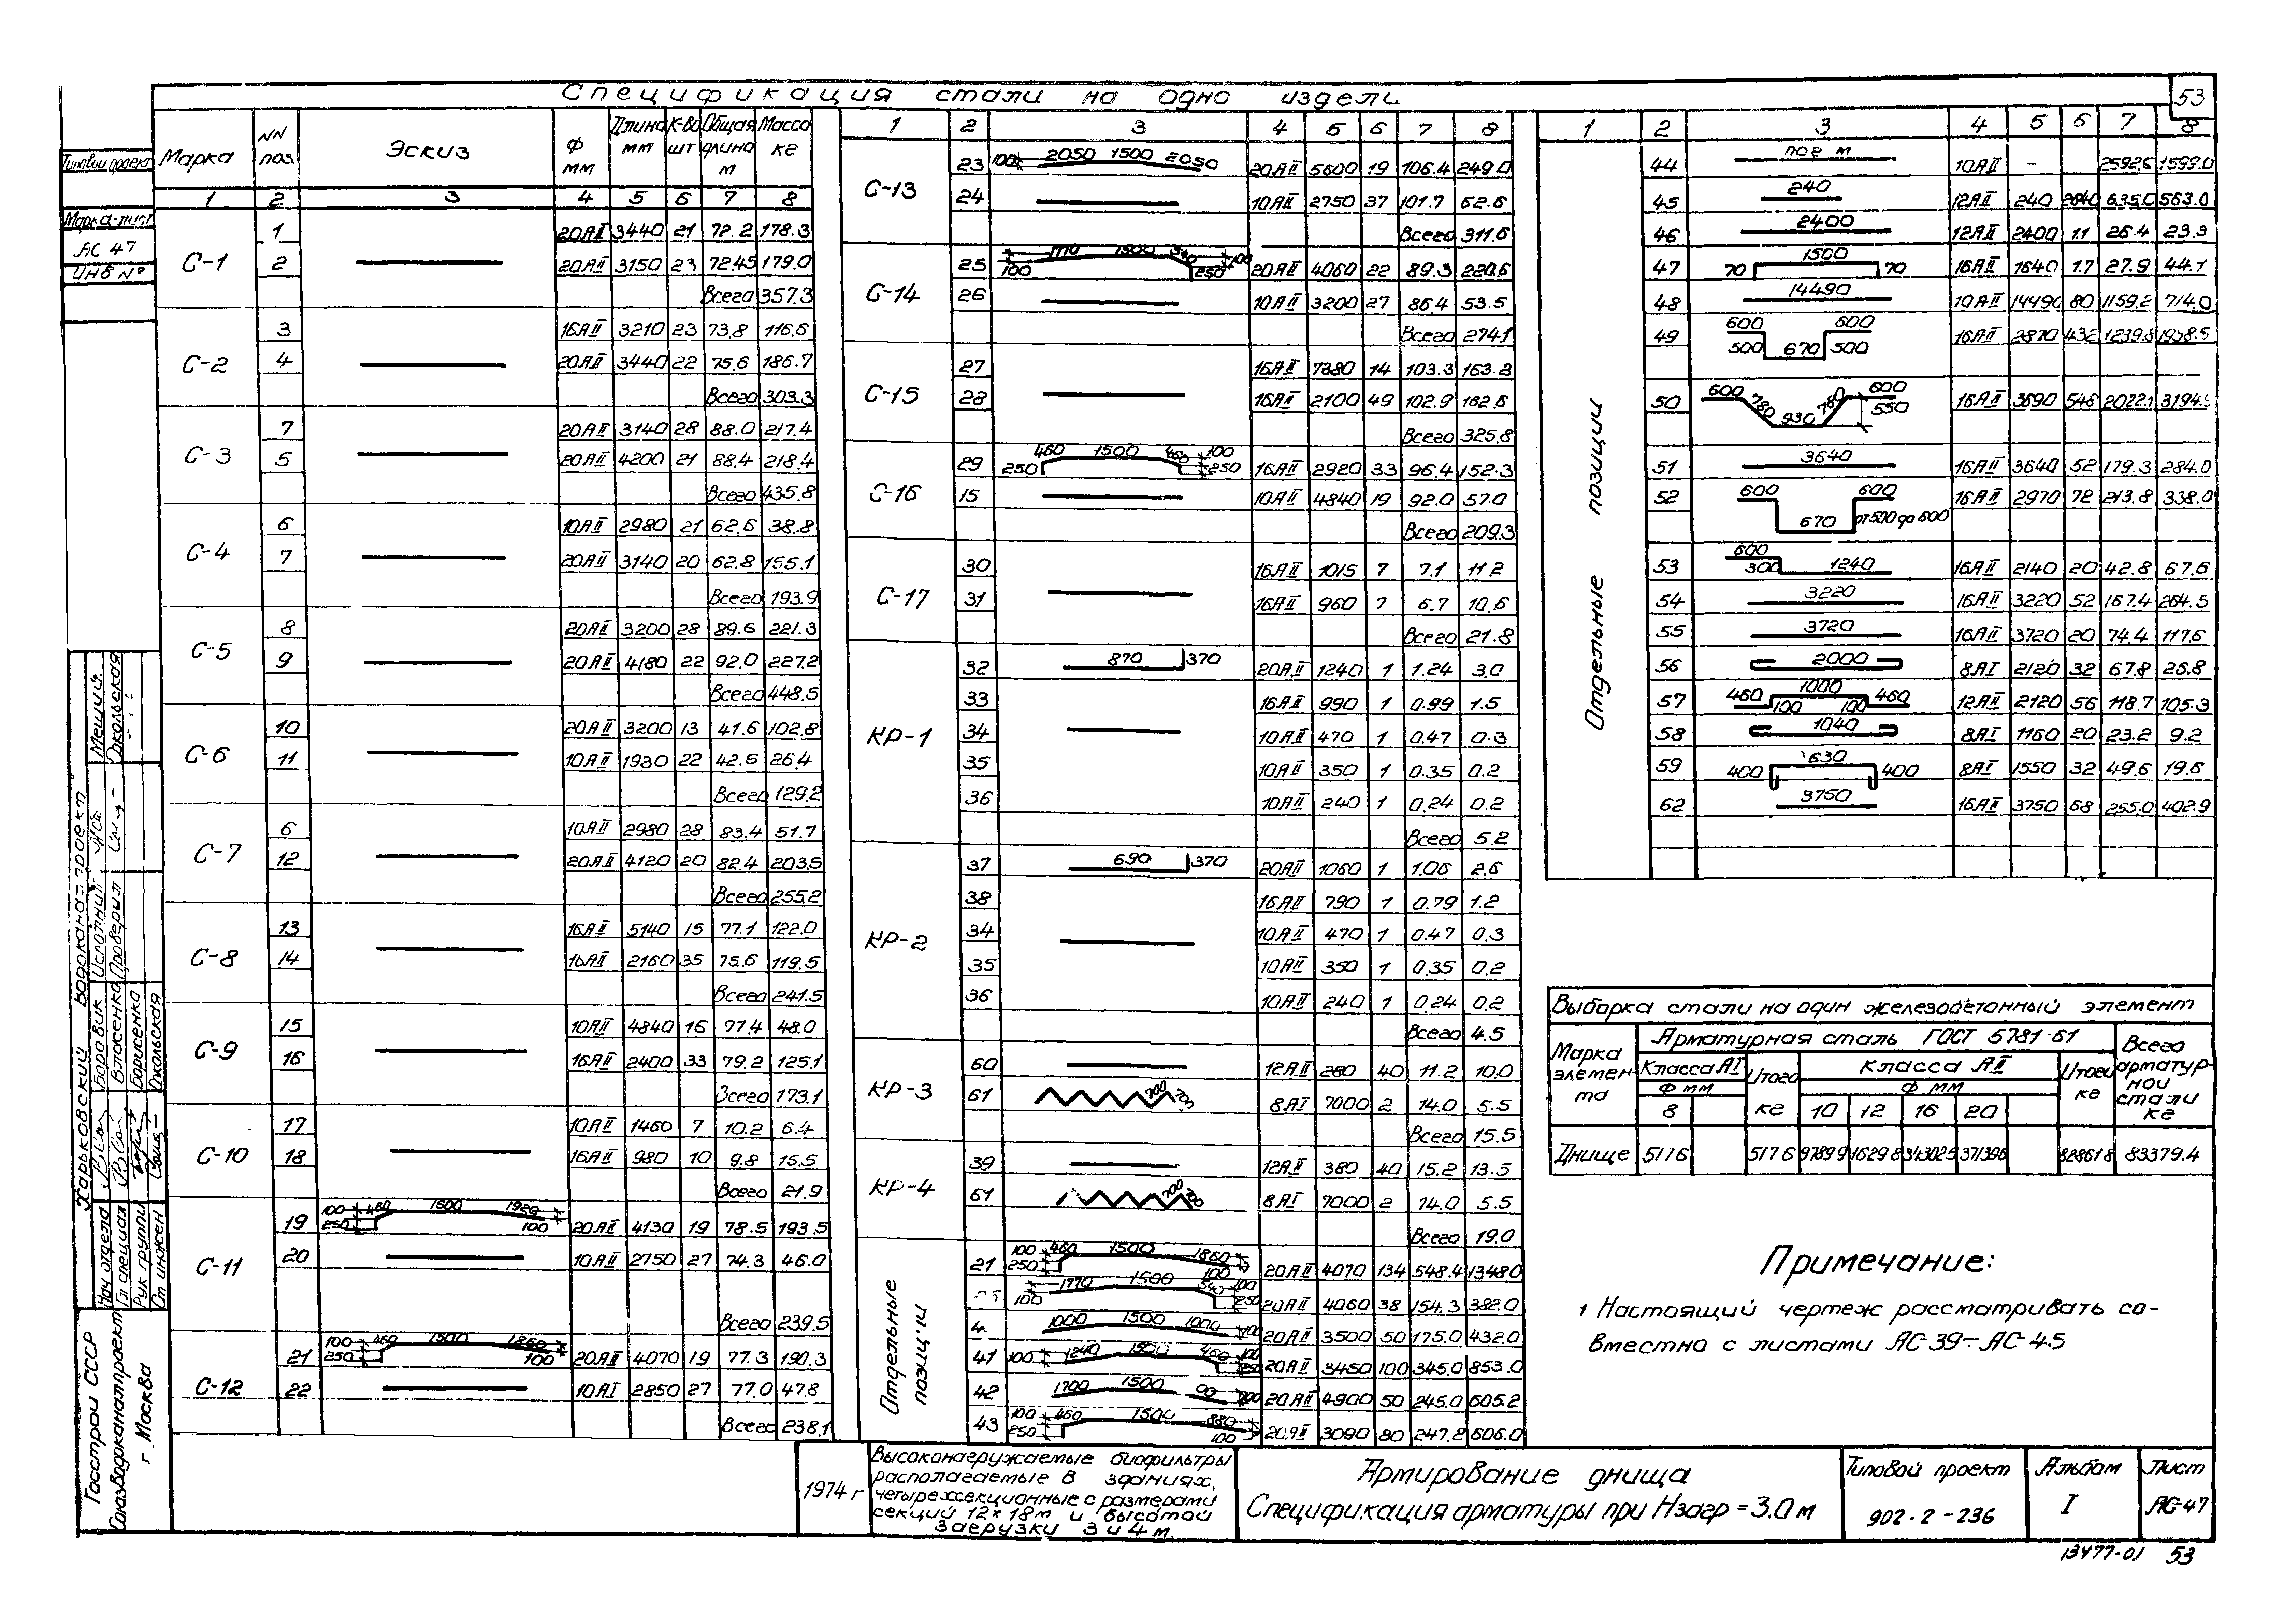 53
Спецификация стали на одно издели
Марка NN поз. Эскиз Ф мм Длина мм К-во шт Общая длина м Масса кг
1 2 3 4 5 6 7 8
С-1
1 20АII 3440 21 72.2 178.3
2 20АII 3150 23 72.45 179.0
Всего 357.3
С-2
3 16АII 3210 23 73.8 116.6
4 20АII 3440 22 75.6 186.7
Всего 303.3
С-3
7 20АII 3140 28 88.0 217.4
5 20АII 4200 21 88.4 218.4
Всего 435.8
С-4
6 10АII 2980 21 62.6 38.8
7 20АII 3140 20 62.8 155.1
Всего 193.9
С-5
8 20АII 3200 28 89.6 221.3
9 20АII 4180 22 92.0 227.2
Всего 448.5
С-6
10 20АII 3200 13 41.6 102.8
11 10АII 1930 22 42.5 26.4
Всего 129.2
С-7
6 10АII 2980 28 83.4 51.7
12 20АII 4120 20 82.4 203.5
Всего 255.2
С-8
13 16АII 5140 15 77.1 122.0
14 16АII 2160 35 75.6 119.5
Всего 241.5
С-9
15 10АII 4840 16 77.4 48.0
16 16АII 2400 33 79.2 125.1
Всего 173.1
С-10
17 10АII 1460 7 10.2 6.4
18 16АII 980 10 9.8 15.5
Всего 21.9
С-11
19 100 250 460 1500 1920 100 20АII 4130 19 78.5 193.5
20 10АII 2750 27 74.3 46.0
Всего 239.5
С-12
21 100 250 460 1500 1860 100 20АII 4070 19 77.3 190.3
22 10АI 2850 27 77.0 47.8
Всего 238.1
1 2 3 4 5 6 7 8
С-13
23 100 2050 1500 2050 20АII 5600 19 106.4 249.0
24 10АII 2750 37 101.7 62.6
Всего 311.6
С-14
25 100 1770 1500 540 250 100 20АII 4060 22 89.3 220.6
26 10АII 3200 27 86.4 53.5
Всего 274.1
С-15
27 16АII 7380 14 103.3 163.2
28 16АII 2100 49 102.9 162.6
Всего 325.8
С-16
29 250 460 1500 460 100 250 16АII 2920 33 96.4 152.3
15 10АII 4840 19 92.0 57.0
Всего 209.3
С-17
30 16АII 1015 7 7.1 11.2
31 16АII 960 7 6.7 10.6
Всего 21.8
КР-1
32 870 370 20АII 1240 1 1.24 3.0
33 16АII 990 1 0.99 1.5
34 10АII 470 1 0.47 0.3
35 10АII 350 1 0.35 0.2
36 10АII 240 1 0.24 0.2
Всего 5.2
КР-2
37 690 370 20АII 1060 1 1.06 2.6
38 16АII 790 1 0.79 1.2
34 10АII 470 1 0.47 0.3
35 10АII 350 1 0.35 0.2
36 10АII 240 1 0.24 0.2
Всего 4.5
КР-3
60 12АII 280 40 11.2 10.0
61 200 200 8АI 7000 2 14.0 5.5
Всего 15.5
КР-4
39 12АII 380 40 15.2 13.5
61 200 200 8АI 7000 2 14.0 5.5
Всего 19.0
Отдельные позиции
21 100 250 460 1500 1860 100 20АII 4070 134 548.4 1348.0
100 1770 1500 540 100 250 20АII 4060 38 154.3 382.0
4 1000 1500 1000 100 20АII 3500 50 175.0 432.0
41 100 1240 1500 460 100 250 20АII 3450 100 345.0 853.0
42 1700 1500 00 100 20АII 4900 50 245.0 605.2
43 100 250 460 1500 880 100 20АII 3090 80 247.2 606.0
1 2 3 4 5 6 7 8
Отдельные позиции
44 пог м 10АII - 2592.6 1599.0
45 240 12АII 240 2640 635.0 563.0
46 2400 12АII 2400 11 26.4 23.9
47 70 1500 70 16АII 1640 17 27.9 44.1
48 14490 10АII 14490 80 1159.2 714.0
49 600 600 500 670 500 16АII 2870 432 1239.8 1958.5
50 600 780 930 780 600 550 16АII 3690 548 2022.1 3194.9
51 3640 16АII 3640 52 179.3 284.0
52 600 600 670 от 500 до 600 16АII 2970 72 213.8 338.0
53 600 300 1240 16АII 2140 20 42.8 67.6
54 3220 16АII 3220 52 167.4 264.5
55 3720 16АII 3720 20 74.4 117.6
56 2000 8АI 2120 32 67.8 26.8
57 460 1000 460 100 100 12АII 2120 56 118.7 105.3
58 1040 8АI 1160 20 23.2 9.2
59 400 630 400 8АI 1550 32 49.6 19.6
62 3750 16АII 3750 68 255.0 402.9
Выборка стали на один железобетонный элемент
Марка элемента Арматурная сталь ГОСТ 5781-61 Всего арматурной стали кг
Класса АI Итого кг Класса АII Итого кг
Ф мм Ф мм
8 10 12 16 20
Днище 517.6 517.6 9789.9 1629.8 34302.5 37139.6 82861.8 83379.4
Примечание:
1 Настоящий чертеж рассматривать со-
вместно с листами АС-39 ÷ АС-45
1974 г
Высоконагружаемые биофильтры
располагаемые в зданиях,
четырехсекционные с размерами
секций 12×18м и высотой
загрузки 3 и 4 м.
Армирование днища
Спецификация арматуры при Нзагр = 3.0 м
Типовой проект
902-2-236
Альбом
I
Лист
АС-47
13477-01 53
Типовой проект
Марка-лист
АС 47
ИНВ №
Харьковский Водоканалпроект
Нач отдела Боровик Исполнил Мещий
Гл специал Власенко Проверил Сокольская
Рук группы Борисенко
Ст инжен Сокольская
Госстрой СССР
Союзводоканалпроект
г Москва